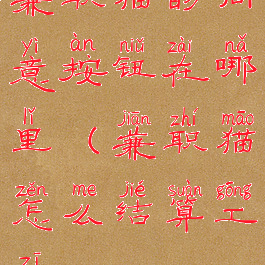 yì àn niǔ zài nǎ
意按钮在哪
lǐ jiān zhí māo
里（兼职猫
zěn me jié suàn gōng
怎么结算工
zī